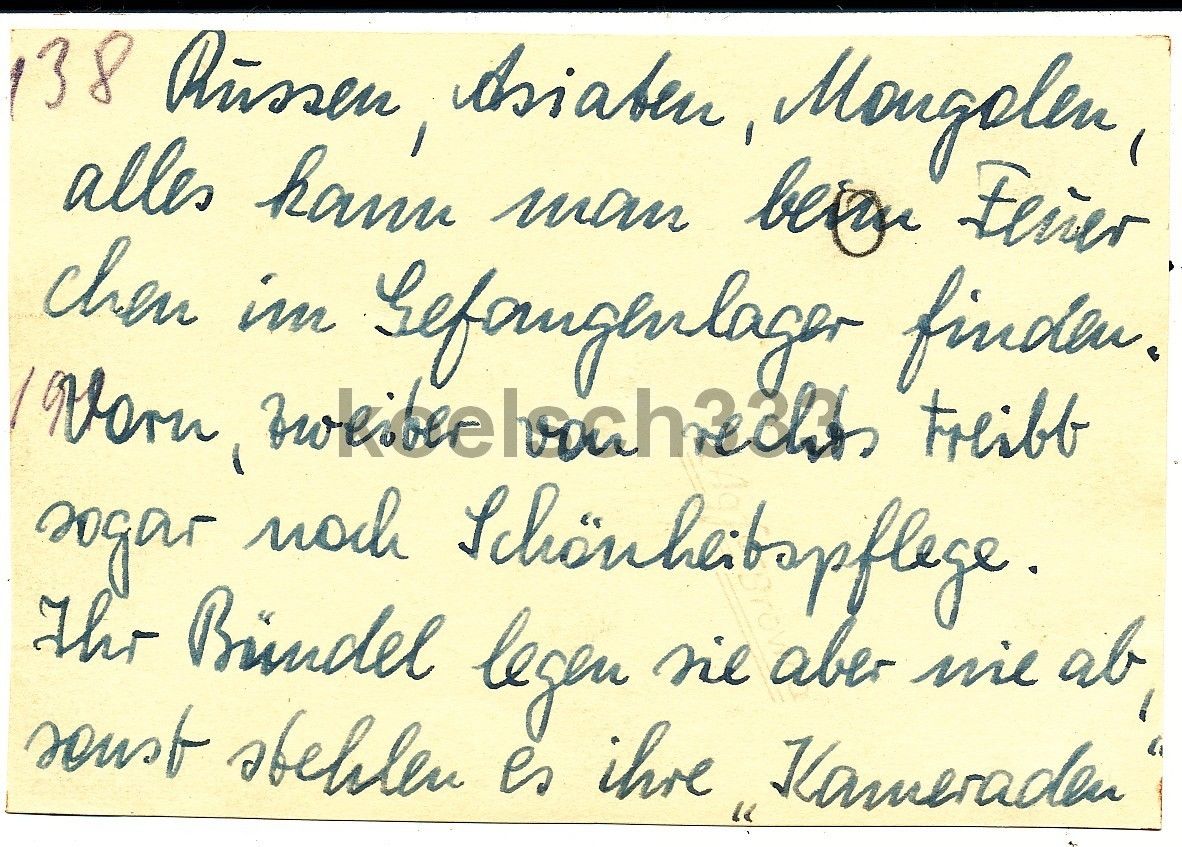 138 Russen, Asiaten, Mongolen,
alles kann man beim Feuer
chen im Gefangenlager finden.
Vorn, zweiter von rechts treibt
sogar noch Schönheitspflege.
Ihr Bündel legen sie aber nie ab,
sonst stehlen es ihre „Kameraden“
koelsch333